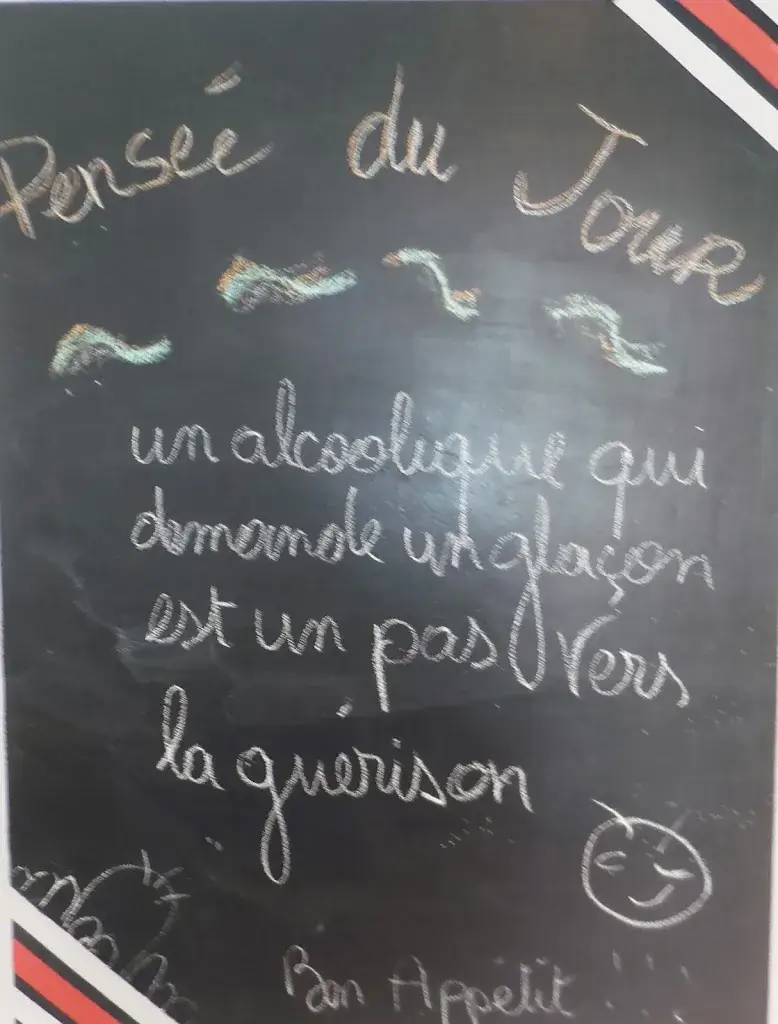 Pensée du Jour
un alcoolique qui
demande un glaçon
est un pas vers
la guérison
Bon Appétit !!!